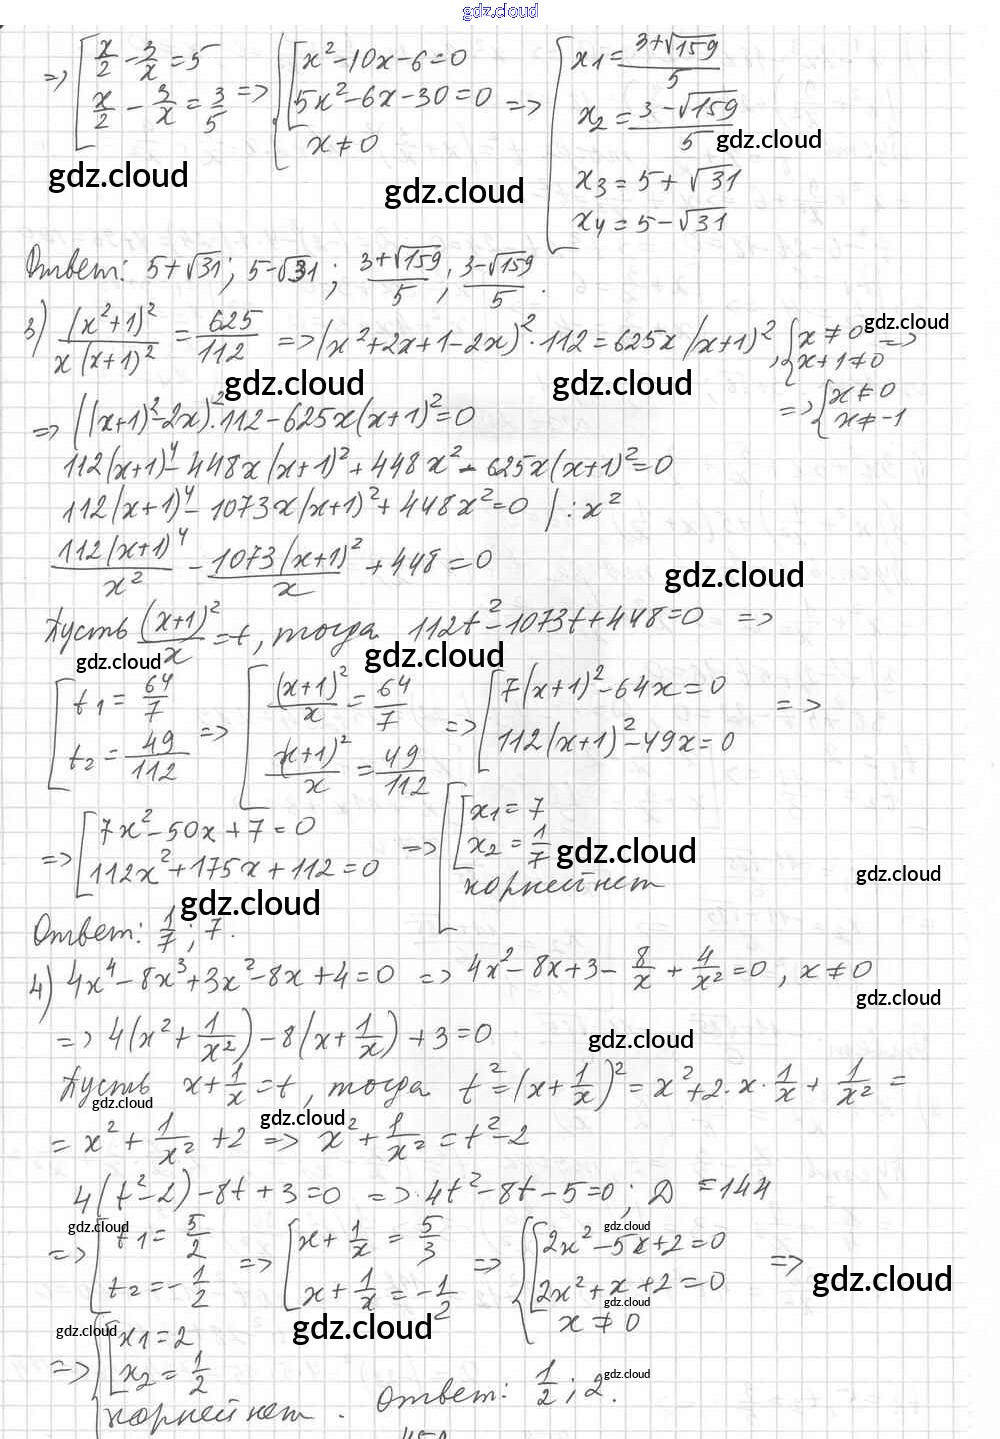 gdz.cloud
=> [ x/2 - 3/x = 5 => { [ x² - 10x - 6 = 0 => [ x₁ = (3+√159)/5
x/2 - 3/x = 3/5 5x² - 6x - 30 = 0 x₂ = (3-√159)/5
x ≠ 0 gdz.cloud
gdz.cloud gdz.cloud x₃ = 5 + √31
x₄ = 5 - √31
Ответ: 5+√31; 5-√31; (3+√159)/5, (3-√159)/5.
3) (x²+1)²/(x(x+1)²) = 625/112 => (x²+2x+1-2x)²·112 = 625x(x+1)², { x ≠ 0 => gdz.cloud
x+1 ≠ 0
gdz.cloud gdz.cloud => { x ≠ 0
x ≠ -1
=> ((x+1)²-2x)²·112 - 625x(x+1)² = 0
112(x+1)⁴ - 448x(x+1)² + 448x² - 625x(x+1)² = 0
112(x+1)⁴ - 1073x(x+1)² + 448x² = 0 | : x²
112(x+1)⁴/x² - 1073(x+1)²/x + 448 = 0
gdz.cloud
Пусть (x+1)²/x = t, тогда 112t² - 1073t + 448 = 0 =>
gdz.cloud gdz.cloud
[ t₁ = 64/7 => [ (x+1)²/x = 64/7 => [ 7(x+1)² - 64x = 0 =>
t₂ = 49/112 (x+1)²/x = 49/112 112(x+1)² - 49x = 0
=> [ 7x² - 50x + 7 = 0 => [ [ x₁ = 7
112x² + 175x + 112 = 0 x₂ = 1/7 gdz.cloud
корней нет gdz.cloud
gdz.cloud
Ответ: 1/7; 7.
4) 4x⁴ - 8x³ + 3x² - 8x + 4 = 0 => 4x² - 8x + 3 - 8/x + 4/x² = 0, x ≠ 0
gdz.cloud
=> 4(x² + 1/x²) - 8(x + 1/x) + 3 = 0
gdz.cloud
Пусть x + 1/x = t, тогда t² = (x + 1/x)² = x² + 2·x·1/x + 1/x² =
gdz.cloud gdz.cloud
= x² + 1/x² + 2 => x² + 1/x² = t² - 2
4(t²-2) - 8t + 3 = 0 => 4t² - 8t - 5 = 0; D = 144
gdz.cloud gdz.cloud
=> [ t₁ = 5/2 => [ x + 1/x = 5/3 => { [ 2x² - 5x + 2 = 0 =>
t₂ = -1/2 x + 1/x = -1/2 2x² + x + 2 = 0 gdz.cloud
gdz.cloud
x ≠ 0
gdz.cloud gdz.cloud
=> [ [ x₁ = 2
x₂ = 1/2
gdz.cloud
корней нет. Ответ: 1/2; 2.